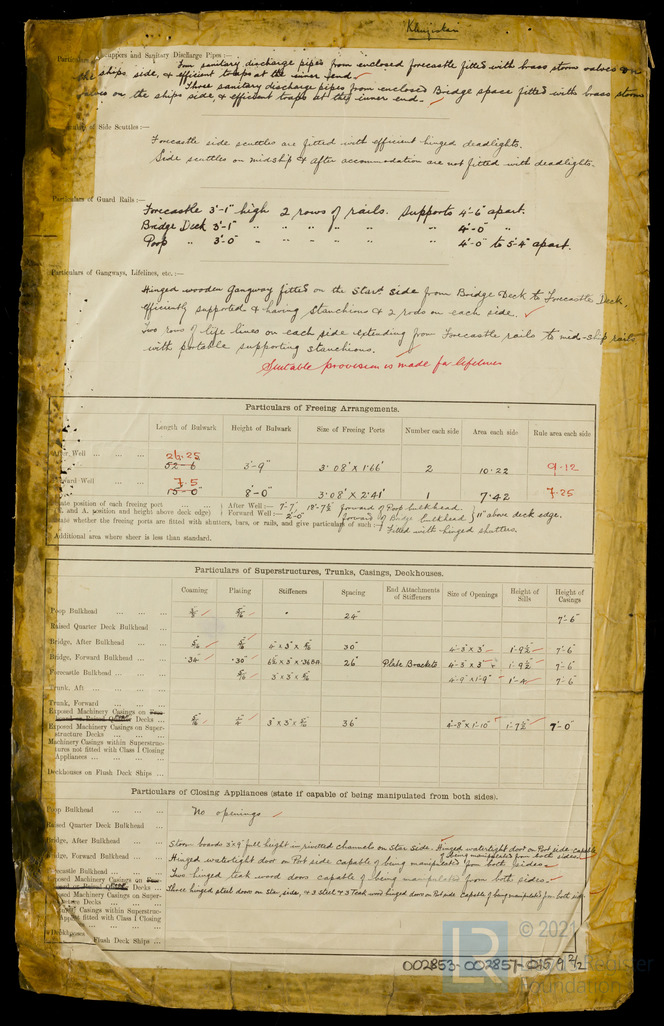 Particulars of Scuppers and Sanitary Discharge Pipes :—
Four sanitary discharge pipes from enclosed forecastle fitted with brass storm valves on
the ships side, & efficient traps at the inner end.
Three sanitary discharge pipes from enclosed Bridge space fitted with brass storm
valves on the ships side, & efficient traps at the inner end.
of Side Scuttles :—
Forecastle side scuttles are fitted with efficient hinged deadlights.
Side scuttles on midship & after accommodation are not fitted with deadlights.
Particulars of Guard Rails :—
Forecastle 3'-1" high 2 rows of rails. Supports 4'-6" apart.
Bridge Deck 3'-1" " " " " " " 4'-0" "
Poop " 3'-0" " " " " " " 4'-0" to 5'-4" apart.
Particulars of Gangways, Lifelines, etc. :—
Hinged wooden Gangway fitted on the Star'd side from Bridge Deck to Forecastle Deck,
efficiently supported & having stanchions & 2 rods on each side.
Two rows of life lines on each side extending from Forecastle rails to mid-ship rails
with portable supporting stanchions.
Suitable provision is made for lifelines
Particulars of Freeing Arrangements.
Length of Bulwark Height of Bulwark Size of Freeing Ports Number each side Area each side Rule area each side
26.25
After Well 52-6 3'-9" 3'.08" X 1'.66" 2 10.22 9.12
7.5
Forward Well 15-0" 8'-0" 3'.08" X 2'.41" 1 7.42 7.25
State position of each freeing port After Well :— 7'-7", 18'-7½" forward of Poop bulkhead
(F. and A. position and height above deck edge) Forward Well :— 2'-0" forward of Bridge bulkhead } 11" above deck edge.
State whether the freeing ports are fitted with shutters, bars, or rails, and give particulars of such :— Fitted with hinged shutters.
Additional area where sheer is less than standard.
Particulars of Superstructures, Trunks, Casings, Deckhouses.
Coaming Plating Stiffeners Spacing End Attachments of Stiffeners Size of Openings Height of Sills Height of Casings
Poop Bulkhead 24" 7'-6"
Raised Quarter Deck Bulkhead
Bridge, After Bulkhead 30" 4'-3" x 3' 1'-9½" 7'-6"
Bridge, Forward Bulkhead .34" .30" 26" Plate Brackets 4'-3" x 3' 1'-9½" 7'-6"
Forecastle Bulkhead 4'-9" x 1'-9" 7'-6"
Trunk, Aft
Trunk, Forward
Exposed Machinery Casings on Decks 36" 4'-8" x 1'-10" 1'-7½" 7'-0"
Exposed Machinery Casings on Superstructure Decks
Machinery Casings within Superstructures not fitted with Class I Closing Appliances
Deckhouses on Flush Deck Ships
Particulars of Closing Appliances (state if capable of being manipulated from both sides).
Poop Bulkhead No openings
Raised Quarter Deck Bulkhead
Bridge, After Bulkhead Storm boards 3'x9" full height in rivetted channels on Star side. Hinged watertight door on Port side capable
of being manipulated from both sides
Bridge, Forward Bulkhead Hinged watertight door on Port side capable of being manipulated from both sides
Forecastle Bulkhead Two hinged teak wood doors capable of being manipulated from both sides.
Exposed Machinery Casings on Decks Three hinged steel doors on Star. side, & 3 Steel & 3 Teak wood hinged doors on Port side capable of being manipulated from both sides
Exposed Machinery Casings on Superstructure Decks
Casings within Superstructures fitted with Class I Closing
Deckhouses Flush Deck Ships
© 2021
LR
Lloyd's Register
Foundation
002853-002857-0159 2/2